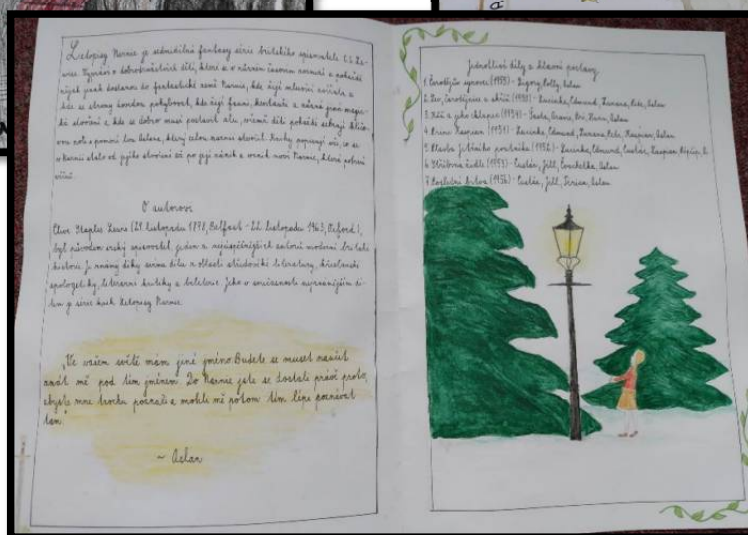 Letopisy Narnie je sedmidílná fantasy série britského spisovatele C.S. Le-
wise. Vypráví o dobrodružstvích dětí, které se v různém časovém rozmezí a pokaždé
nějak jinak dostanou do fantastické země Narnie, kde žijí mluvící zvířata a
kde se stromy mohou pohybovat, kde žijí fauni, kentauři a různá jiná magic-
ká stvoření a kde se dobro musí postavit zlu, přičemž děti pokaždé sehrají klíčo-
vou roli s pomocí lva Aslana, který celou Narnii stvořil. Knihy popisují vše, co se
v Narnii stalo od jejího stvoření až po její zánik a vznik nové Narnie, která potrvá
věčně.
O autorovi
Clive Staples Lewis (29. listopadu 1898, Belfast - 22. listopadu 1963, Oxford),
byl původem irský spisovatel, jeden z nejúspěšnějších autorů moderní britské
historie. Je známý díky svému dílu z oblasti středověké literatury, křesťanské
apologetiky, literární kritiky a beletrie. Jeho v současnosti nejznámějším dí-
lem je série knih Letopisy Narnie.
„Ve vašem světě mám jiné jméno. Budete se muset naučit
znát mě pod tím jménem. Do Narnie jste se dostali právě proto,
abyste mne trochu poznali a mohli mě potom tím lépe poznávat
tam."
~ Aslan
Jednotlivé díly a hlavní postavy
1. Čarodějův synovec (1955) - Digory, Polly, Aslan
2. Lev, čarodějnice a skříň (1950) - Lucinka, Edmund, Zuzana, Petr, Aslan
3. Kůň a jeho chlapec (1954) - Šasta, Aravis, Bri, Aslan
4. Princ Kaspian (1951) - Lucinka, Edmund, Zuzana, Petr, Kaspian, Aslan
5. Plavba Jitřního poutníka (1952) - Lucinka, Edmund, Eustác, Kaspian, Rípčíp, A.
6. Stříbrná židle (1953) - Eustác, Jill, Čvachtalka, Aslan
7. Poslední bitva (1956) - Eustác, Jill, Tirian, Aslan